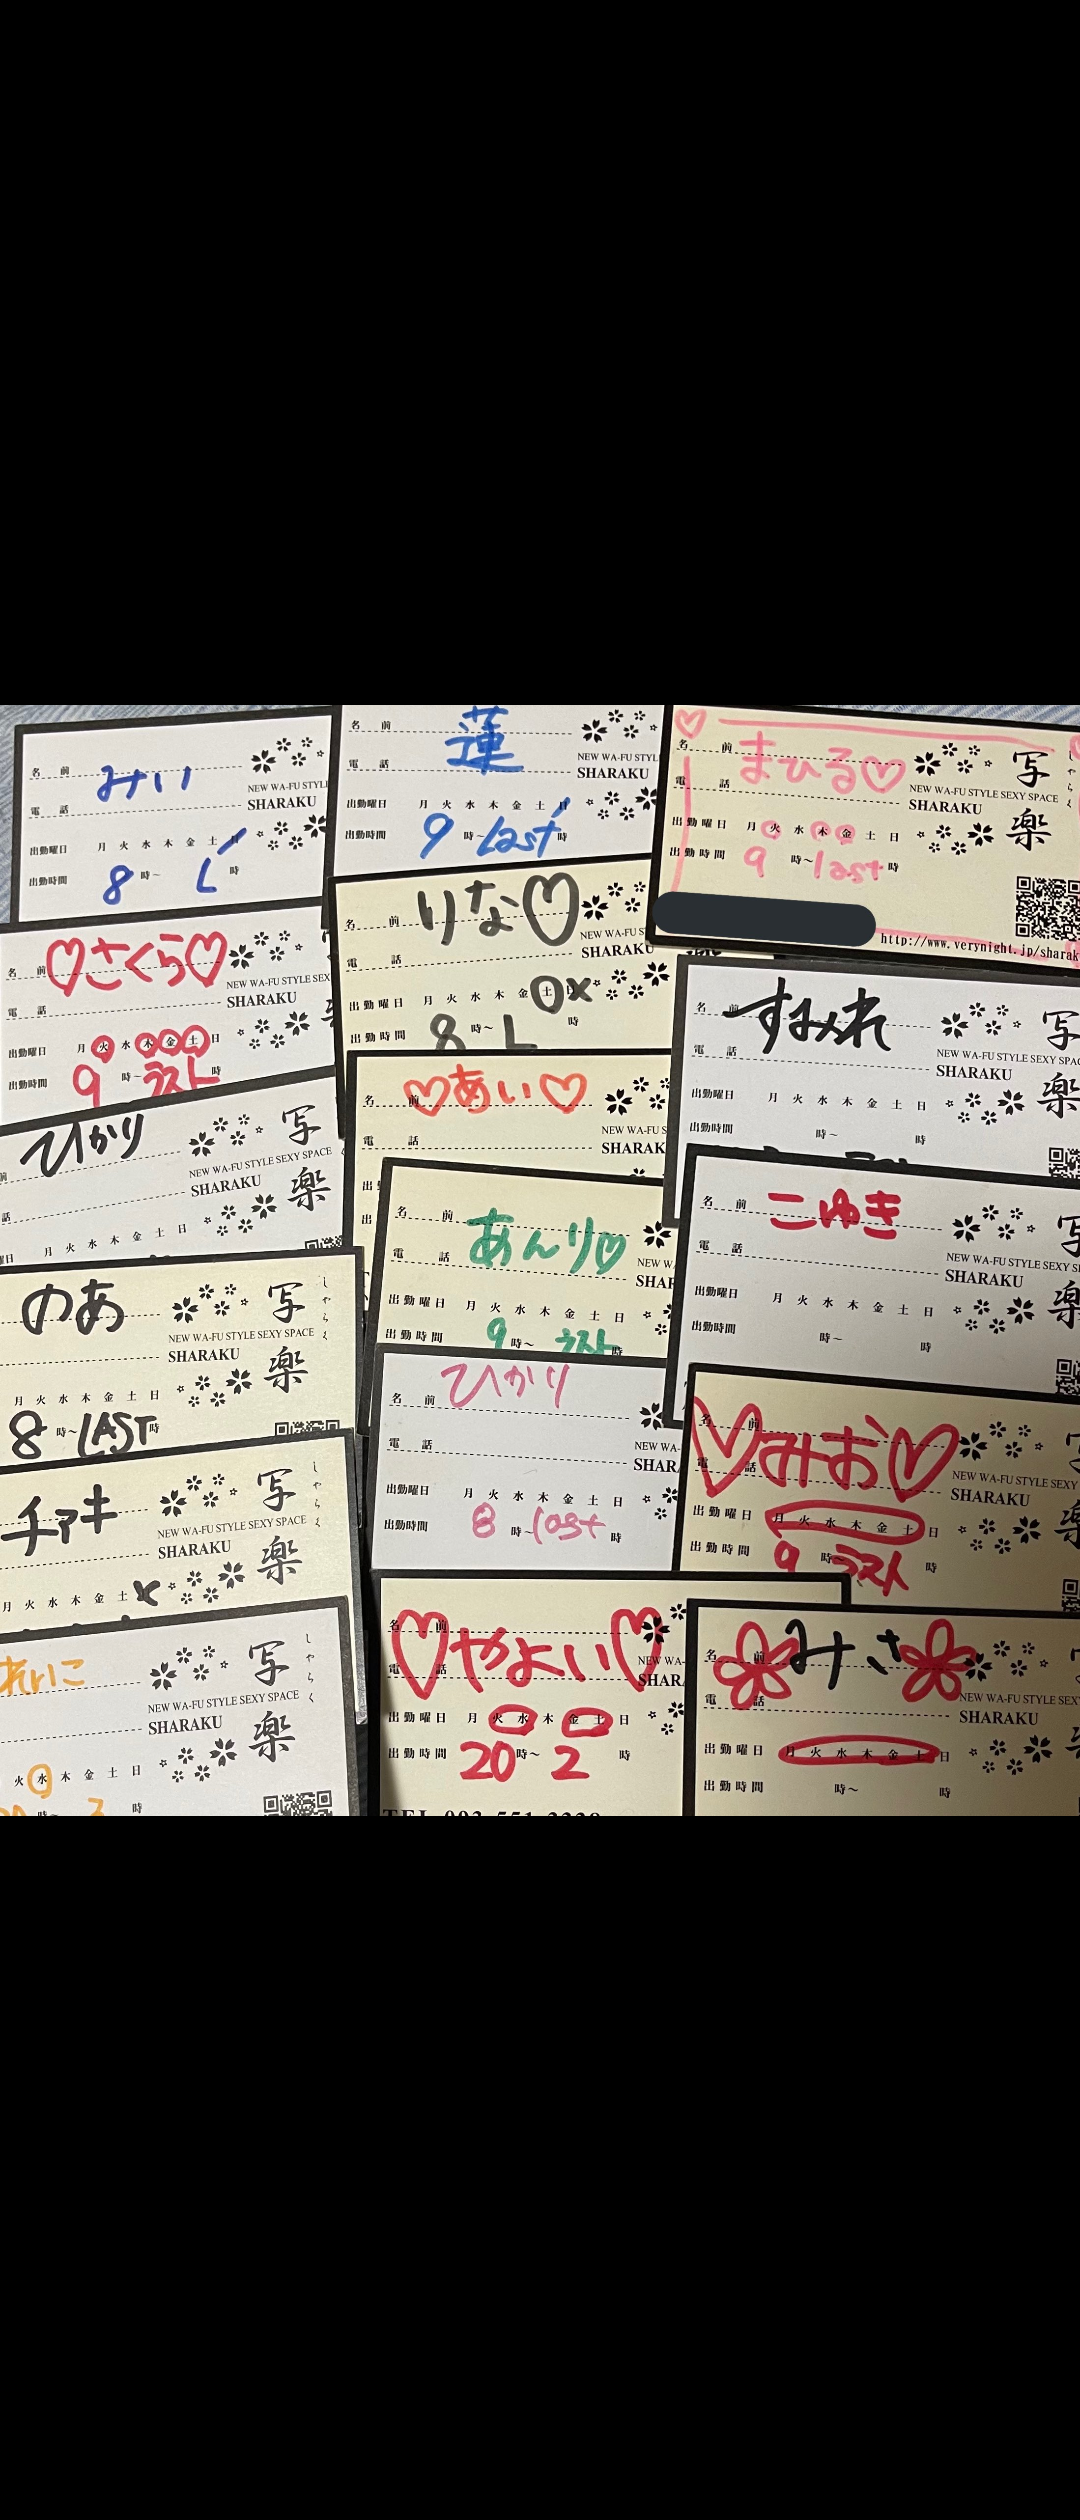 名 前 みい
電 話
NEW WA-FU STYLE
SHARAKU
出勤曜日 月 火 水 木 金 土 日
出勤時間 8 時～ L 時
名 前 蓮
電 話
NEW WA-FU STYL
SHARAKU
出勤曜日 月 火 水 木 金 土 日
出勤時間 9 時～ Last 時
名 前 まひる♡
電 話
写楽
しゃらく
NEW WA-FU STYLE SEXY SPACE
SHARAKU
出勤曜日 月 火 水 木 金 土 日
出勤時間 9 時～ last 時
http://www.verynight.jp/sharak
名 前 ♡さくら♡
電 話
NEW WA-FU STYLE SEX
SHARAKU
出勤曜日 月 火 水 木 金 土 日
出勤時間 9 時～ ラスト 時
名 前 りな♡
電 話
NEW WA-FU STYLE
SHARAKU
出勤曜日 月 火 水 木 金 土 日 ×
出勤時間 8 時～ L 時
名 前 すみれ
電 話
写楽
NEW WA-FU STYLE SEXY SPAC
SHARAKU
出勤曜日 月 火 水 木 金 土 日
出勤時間 時～ 時
前 ひかり
話
写楽
NEW WA-FU STYLE SEXY SPACE
SHARAKU
曜日 月 火 水 木 金 土 日
名 前 ♡あい♡
電 話
NEW WA-FU S
SHARAK
出
出
名 前 あんり♡
電 話
NEW WA-
SHAR
出勤曜日 月 火 水 木 金 土
出勤時間 9 時～ ラスト 時
名 前 こゆき
電 話
写楽
NEW WA-FU STYLE SEXY S
SHARAKU
出勤曜日 月 火 水 木 金 土 日
出勤時間 時～ 時
のあ
写楽
しゃらく
NEW WA-FU STYLE SEXY SPACE
SHARAKU
月 火 水 木 金 土 日
8 時～ LAST 時
名 前 ひかり
電 話
NEW WA-
SHAR
出勤曜日 月 火 水 木 金 土 日
出勤時間 8 時～ last 時
名 前 ♡みお♡
電 話
NEW WA-FU STYLE SEX
SHARAKU
出勤曜日 月 火 水 木 金 土 日
出勤時間 9 時～ ラスト 時
チアキ
写楽
しゃらく
NEW WA-FU STYLE SEXY SPACE
SHARAKU
月 火 水 木 金 土 ×
れいこ
写楽
しゃらく
NEW WA-FU STYLE SEXY SPACE
SHARAKU
火 水 木 金 土 日
時～ 時
名 前 ♡やよい♡
電 話
NEW WA-
SHARA
出勤曜日 月 火 水 木 金 土 日
出勤時間 20 時～ 2 時
名 前 みさ
電 話
NEW WA-FU STYLE SEX
SHARAKU
出勤曜日 月 火 水 木 金 土 日
出勤時間 時～ 時